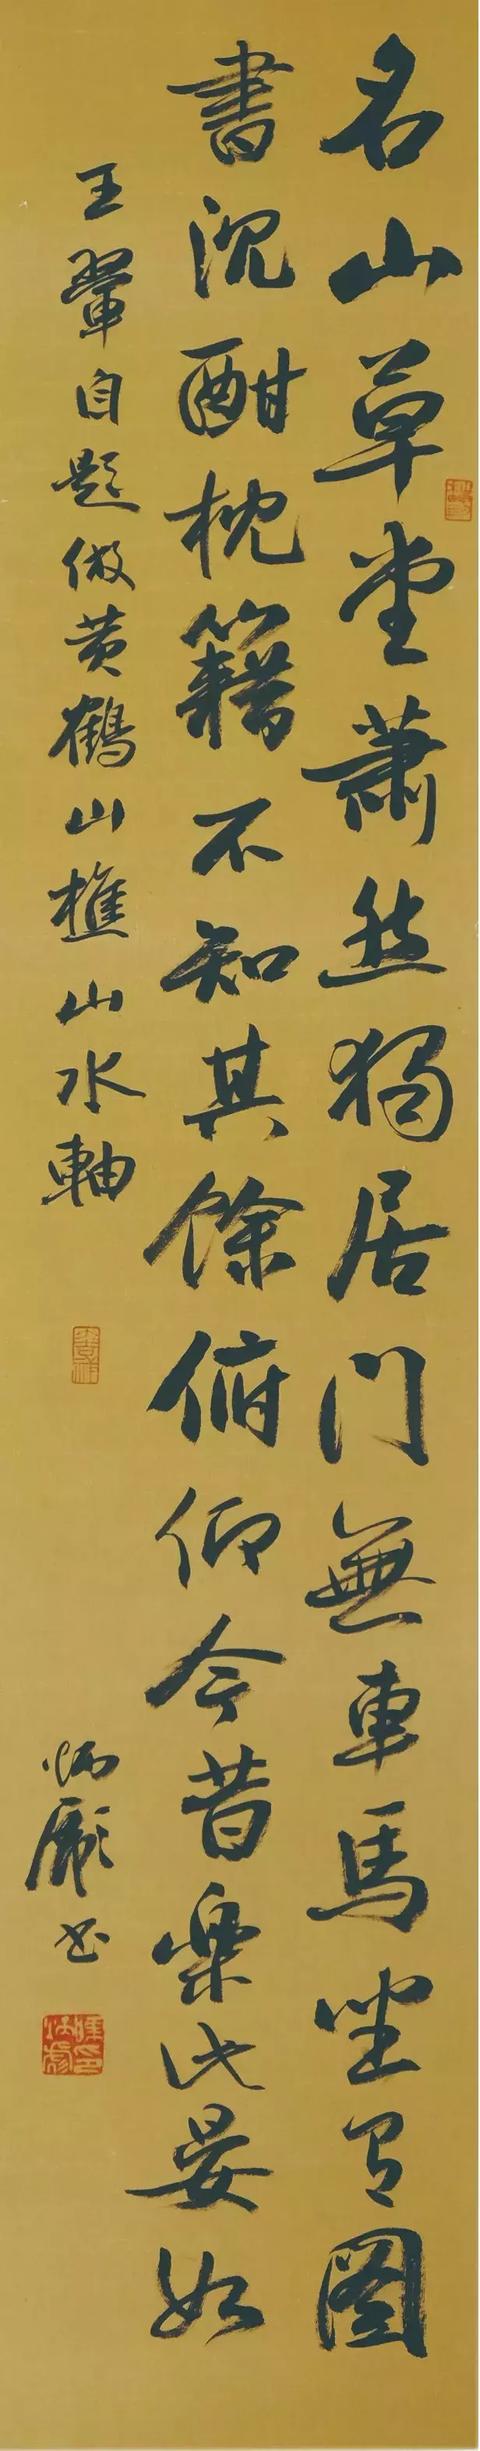 名山草堂蕭然獨居門無車馬坐有圖
書沉酣枕籍不知其餘俯仰今昔樂此晏如
王翬自題倣黄鶴山樵山水軸
炳彪书